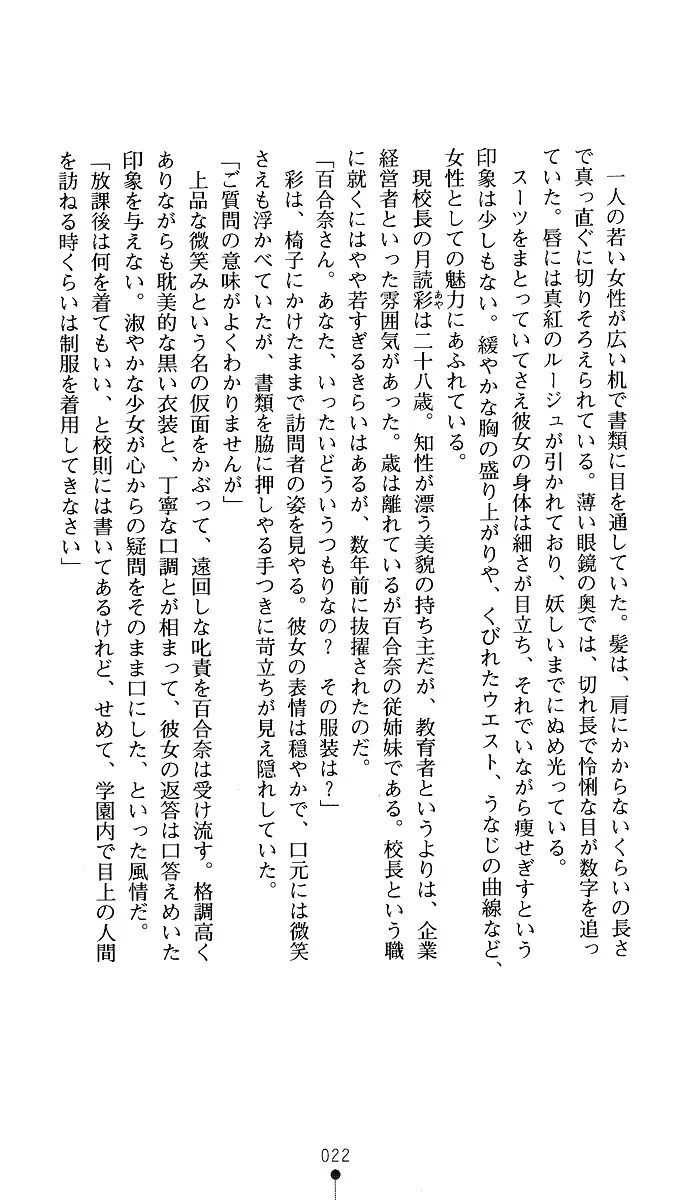 一人の若い女性が広い机で書類に目を通していた。髪は、肩にかからないくらいの長さ
で真っ直ぐに切りそろえられている。薄い眼鏡の奥では、切れ長で怜悧な目が数字を追っ
ていた。唇には真紅のルージュが引かれており、妖しいまでにぬめ光っている。
スーツをまとっていてさえ彼女の身体は細さが目立ち、それでいながら痩せぎすという
印象は少しもない。緩やかな胸の盛り上がりや、くびれたウエスト、うなじの曲線など、
女性としての魅力にあふれている。
現校長の月読彩は二十八歳。知性が漂う美貌の持ち主だが、教育者というよりは、企業
あや
経営者といった雰囲気があった。歳は離れているが百合奈の従姉妹である。校長という職
に就くにはやや若すぎるきらいはあるが、数年前に抜擢されたのだ。
「百合奈さん。あなた、いったいどういうつもりなの？　その服装は？」
彩は、椅子にかけたままで訪問者の姿を見やる。彼女の表情は穏やかで、口元には微笑
さえも浮かべていたが、書類を脇に押しやる手つきに苛立ちが見え隠れしていた。
「ご質問の意味がよくわかりませんが」
上品な微笑みという名の仮面をかぶって、遠回しな叱責を百合奈は受け流す。格調高く
ありながらも耽美的な黒い衣装と、丁寧な口調とが相まって、彼女の返答は口答えめいた
印象を与えない。淑やかな少女が心からの疑問をそのまま口にした、といった風情だ。
「放課後は何を着てもいい、と校則には書いてあるけれど、せめて、学園内で目上の人間
を訪ねる時くらいは制服を着用してきなさい」
022